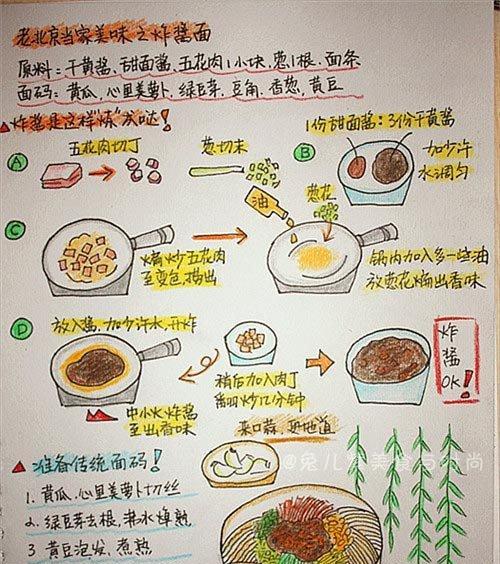 老北京当家美味之炸酱面
原料：干黄酱、甜面酱、五花肉1小块、葱1根、面条
面码：黄瓜、心里美萝卜、绿豆芽、豆角、香葱、黄豆
炸酱是这样炼成哒！
1份甜面酱：3份干黄酱
A
五花肉切丁
葱切末
B
加少许
水调匀
油
葱花
C
煸炒五花肉
至变色,捞出
锅内加入多一些油
放葱花煸出香味
D
放入酱,加少许水,开炸
中小火炸酱
至出香味
稍后加入肉丁
翻炒几分钟
炸
酱
OK!
来口蒜,更地道
@兔儿爱美食与时尚
准备传统面码！
1. 黄瓜、心里美萝卜切丝
2. 绿豆芽去根,沸水焯熟
3 黄豆泡发、煮熟